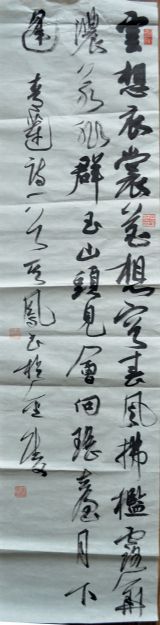 雲想衣裳花想容春風拂檻露華
濃若非群玉山頭見會向瑤臺月下
逢 青蓮詩一首